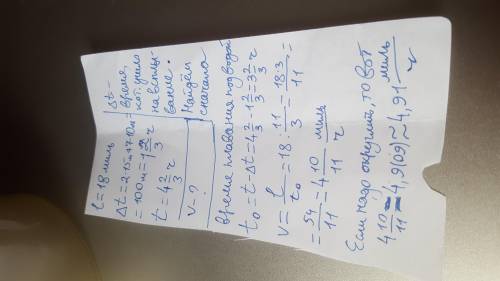 l = 18 миль
Δt = 2·15м+7·10м =
= 100м = 1 2/3 ч
t = 4 2/3 ч
v - ?
Δt -
время,
кот. ушло
на всплы-
вание.
Найдём
сначала
время плавания под водой
t₀ = t - Δt = 4 2/3 - 1 2/3 = 3 2/3 ч
v = l/t₀ = 18 : 11/3 = 18·3/11 =
= 54/11 = 4 10/11 миль/ч
Если надо округлить, то вот
4 10/11 = 4,9(09) ≈ 4,91 миль/ч